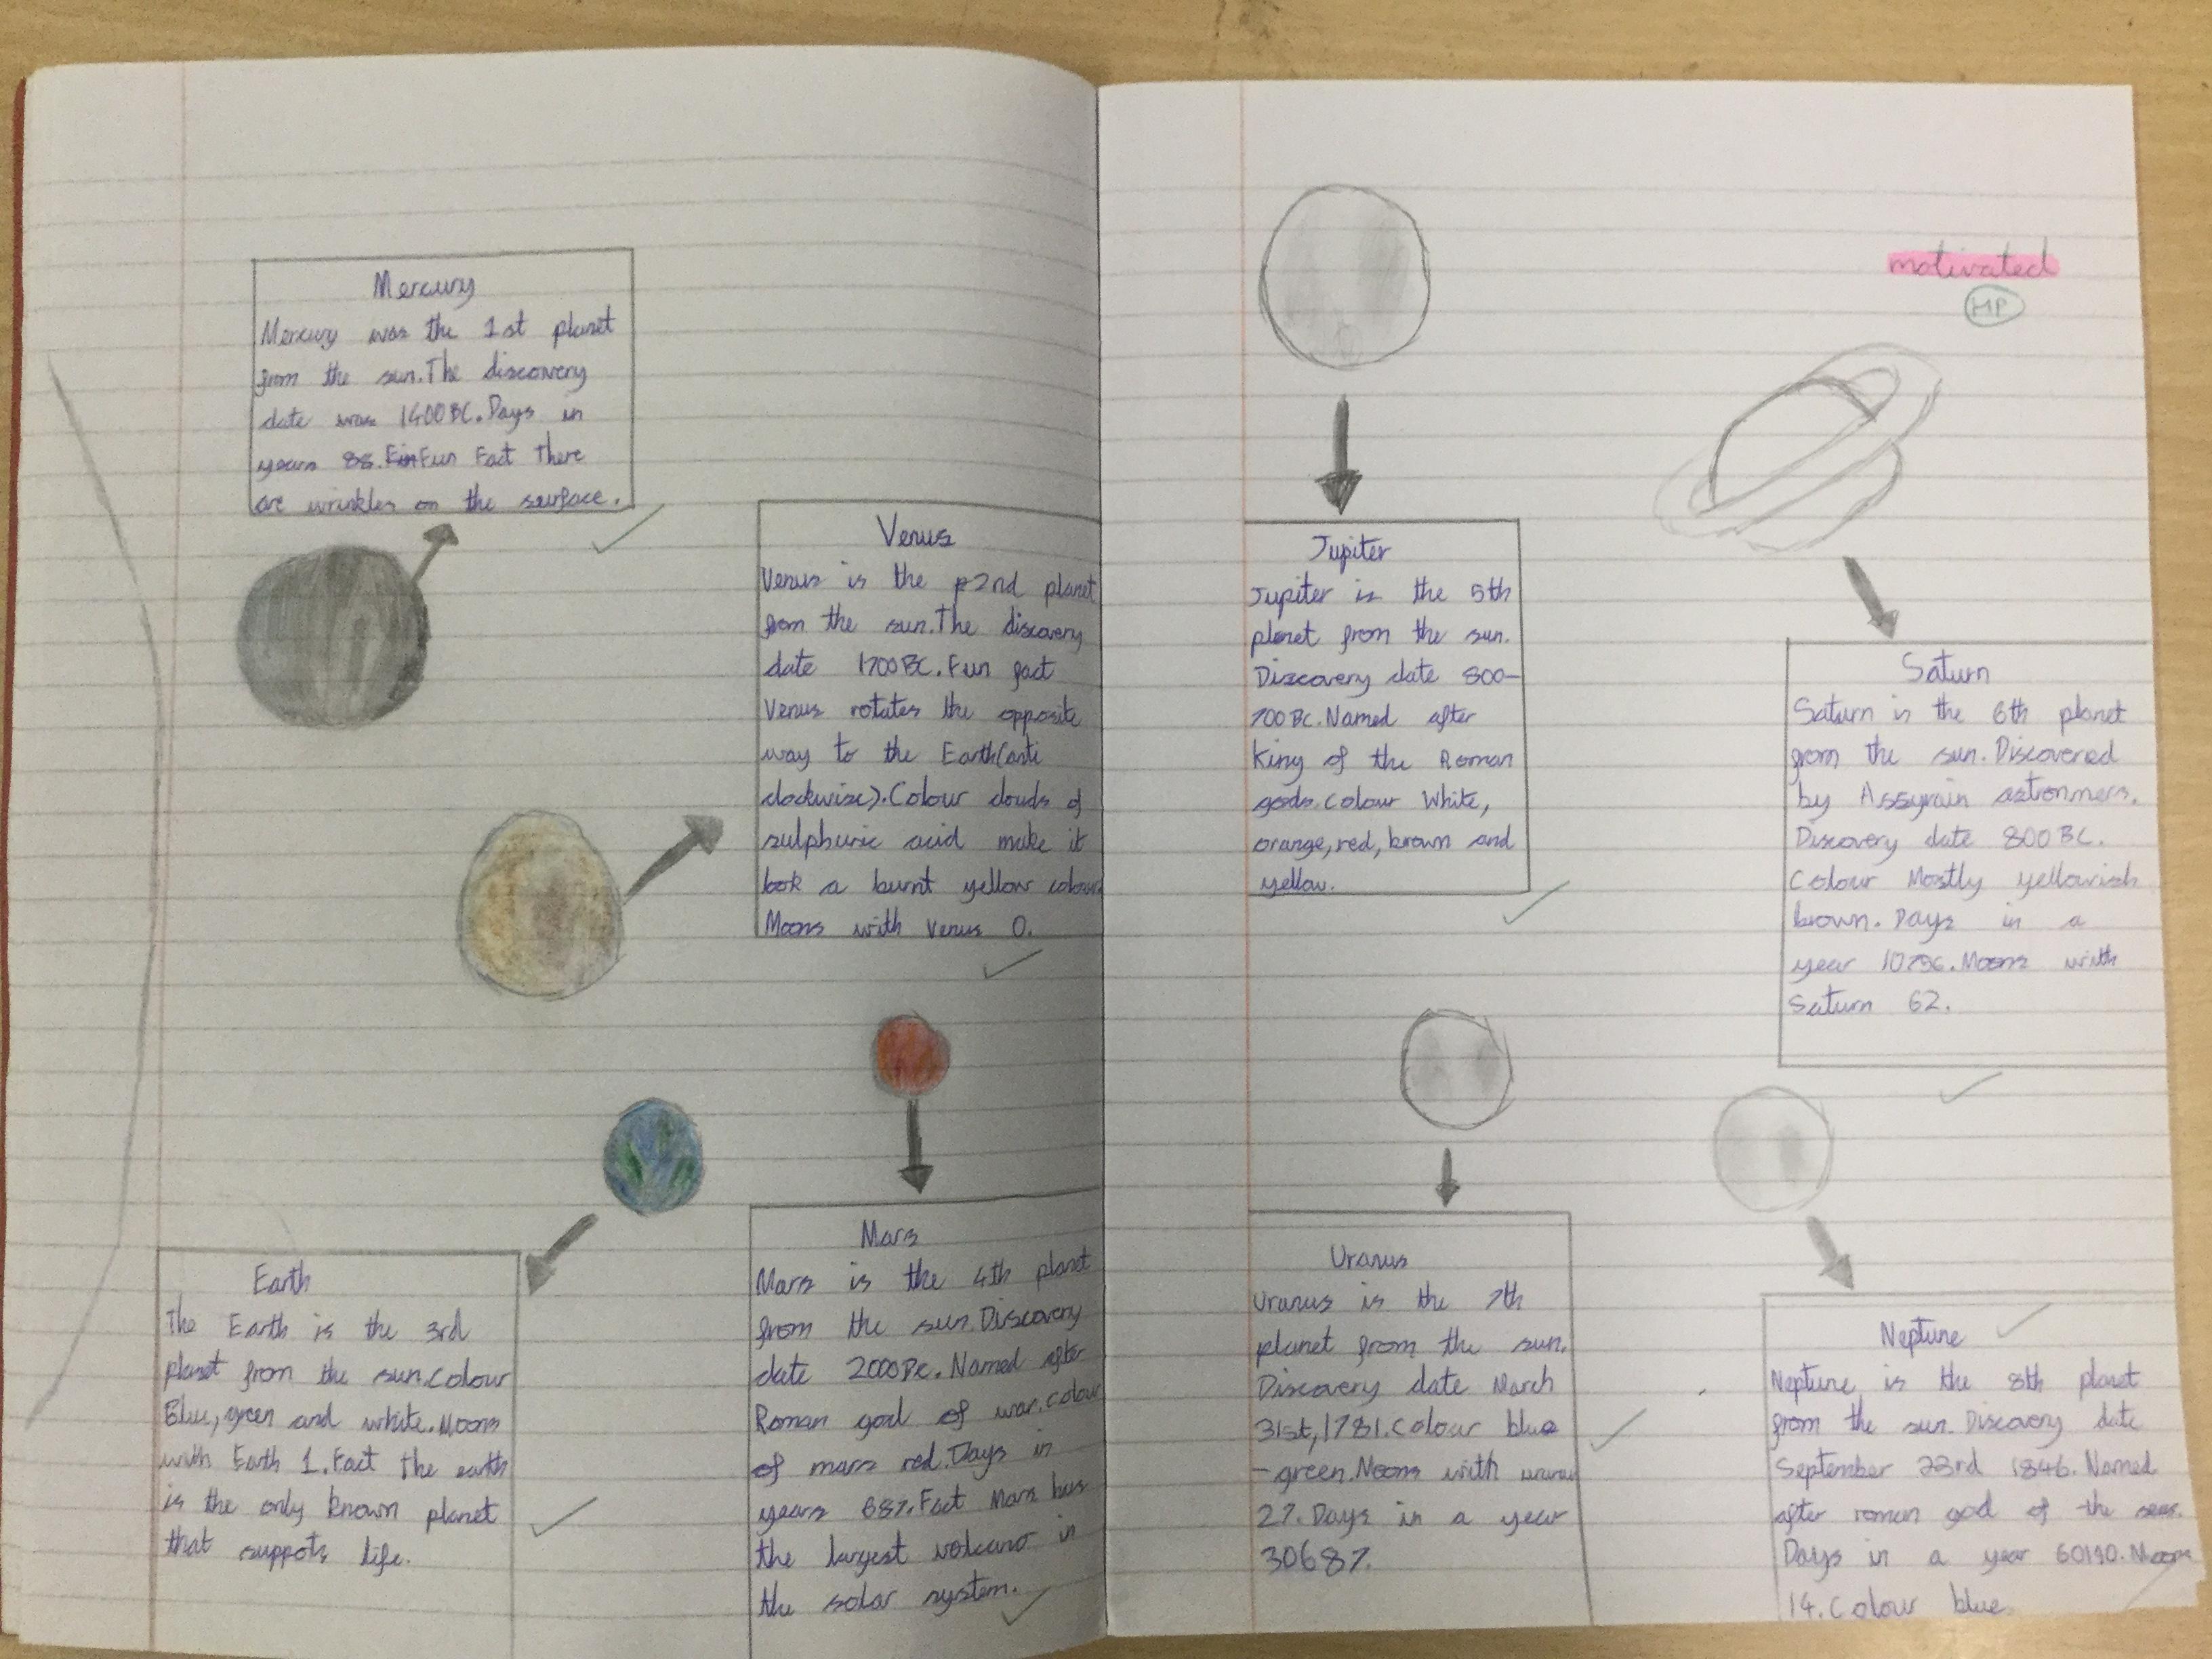 Mercury
Mercury was the 1st planet
from the sun.The discovery
date was 1400BC.Days in
years 88.Fun Fact There
are wrinkles on the surface.
Venus
Venus is the 2nd planet
from the sun.The discovery
date 1700BC.Fun fact
Venus rotates the opposite
way to the Earth(anti
clockwise).Colour clouds of
sulphuric acid make it
look a burnt yellow colour
Moons with Venus 0.
Earth
The Earth is the 3rd
planet from the sun.colour
Blue,green and white.Moons
with Earth 1.Fact The earth
is the only known planet
that suppots life.
Mars
Mars is the 4th planet
from the sun.Discovery
date 2000BC.Named after
Roman god of war.colour
of mars red.Days in
years 687.Fact Mars has
the largest volcano in
the solar system.
motivated
HP
Jupiter
Jupiter is the 5th
planet from the sun.
Discovery date 800-
700BC.Named after
king of the Roman
gods.Colour White,
orange,red,brown and
yellow.
Saturn
Saturn is the 6th planet
from the sun.Discovered
by Assyrain astronmers.
Discovery date 800BC.
Colour Mostly yellowish
brown.Days in a
year 10756.Moons with
Saturn 62.
Uranus
Uranus is the 7th
planet from the sun.
Discovery date March
31st,1781.Colour blue
-green.Moons with uranus
27.Days in a year
30687.
Neptune
Neptune is the 8th planet
from the sun.Discovery date
September 23rd 1846.Named
after roman god of the seas.
Days in a year 60190.Moons
14.Colour blue.